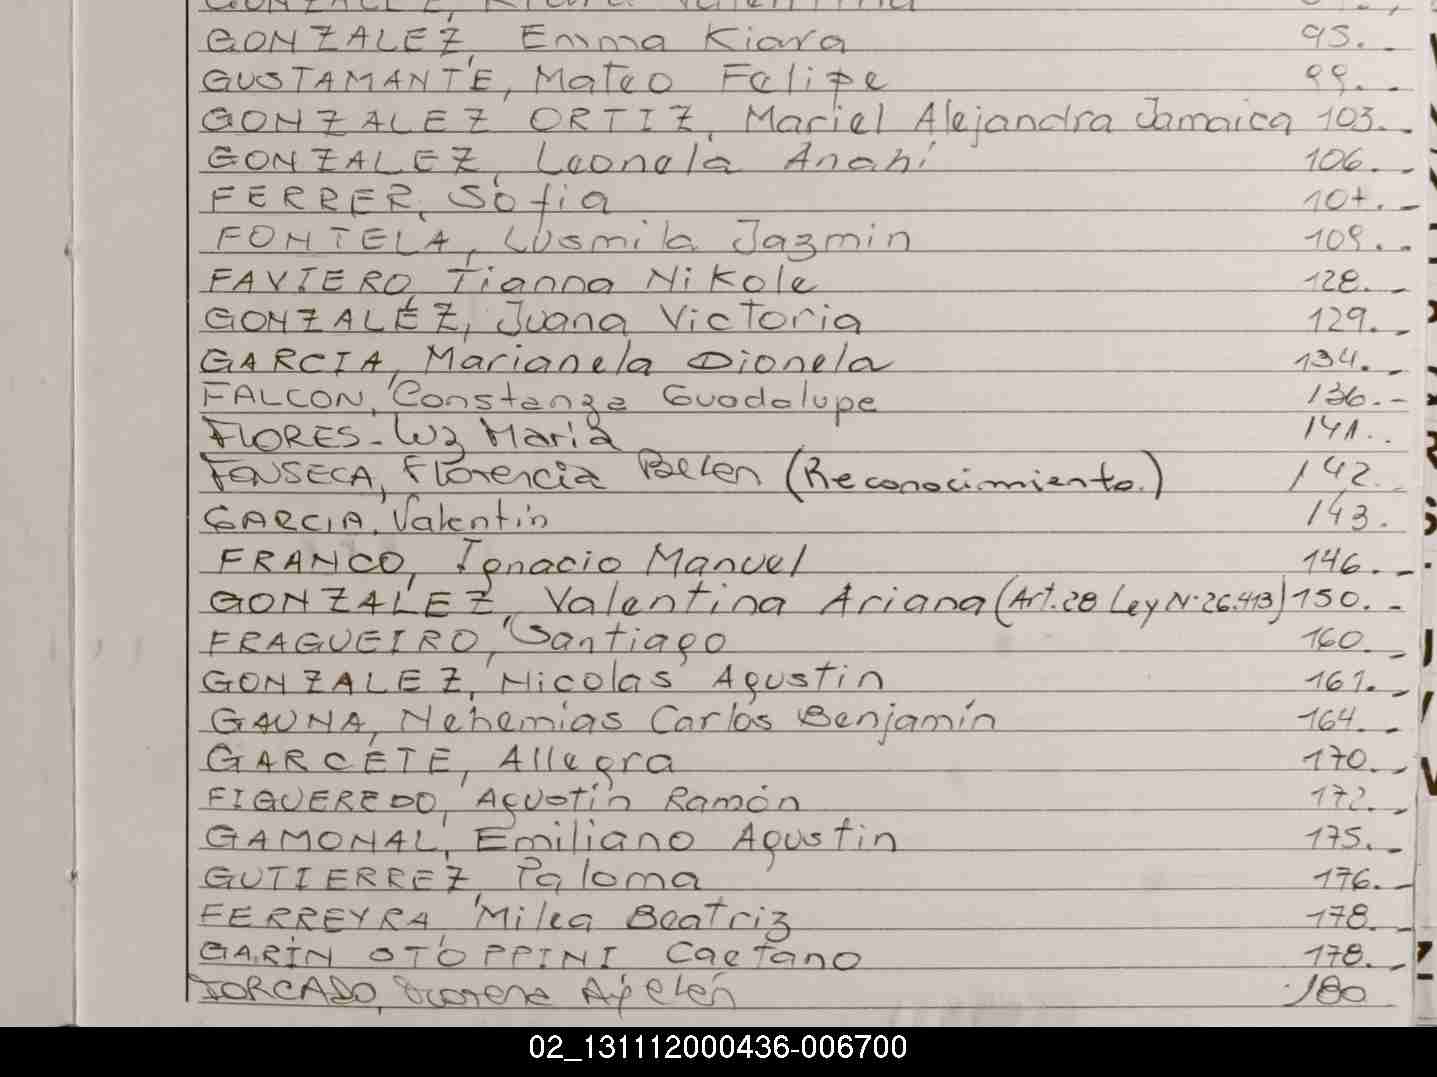 GONZALEZ, Kiara Valentina
GONZALEZ, Emma Kiara 95.-
GUSTAMANTE, Mateo Felipe 99.-
GONZALEZ ORTIZ, Mariel Alejandra Jamaica 103.-
GONZALEZ, Leonela Anahí 106.-
FERRER, Sofia 107.-
FONTELA, Lusmila Jazmin 109.-
FAVIERO, Tianna Nikole 128.-
GONZALEZ, Juana Victoria 129.-
GARCIA, Marianela Dionela 134.-
FALCON, Constanza Guadalupe 136.-
FLORES- Luz María 141..
FONSECA, Florencia Belen (Reconocimiento.) 142.
GARCIA, Valentín 143.
FRANCO, Ignacio Manuel 146.-
GONZALEZ, Valentina Ariana (Art. 28 Ley N° 26.413) 150.-
FRAGUEIRO, Santiago 160.-
GONZALEZ, Nicolas Agustin 161.-
GAUNA, Nehemías Carlos Benjamín 164.-
GARCETE, Allegra 170.-
FIGUEREDO, Agustín Ramón 172.-
GAMONAL, Emiliano Agustin 175.-
GUTIERREZ, Paloma 176.-
FERREYRA, Milea Beatriz 178.-
GARÍN OTOPPINI Caetano 178.-
FORCADO, 180
02_131112000436-006700